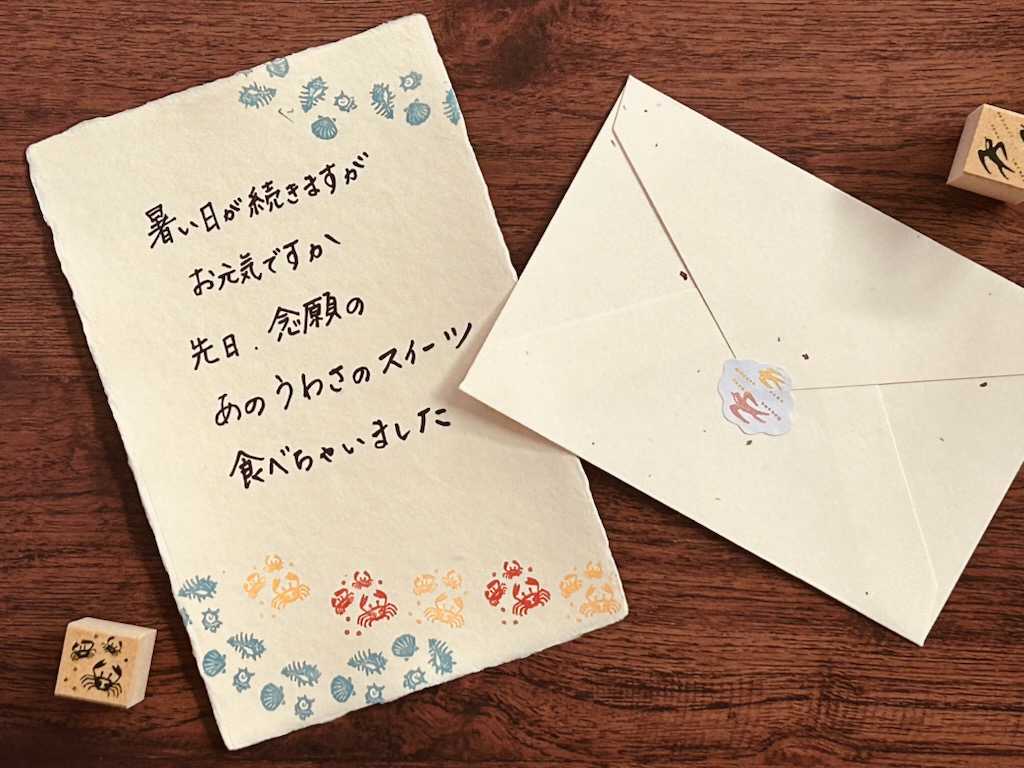 暑い日が続きますが
お元気ですか
先日、念願の
あのうわさのスイーツ
食べちゃいました